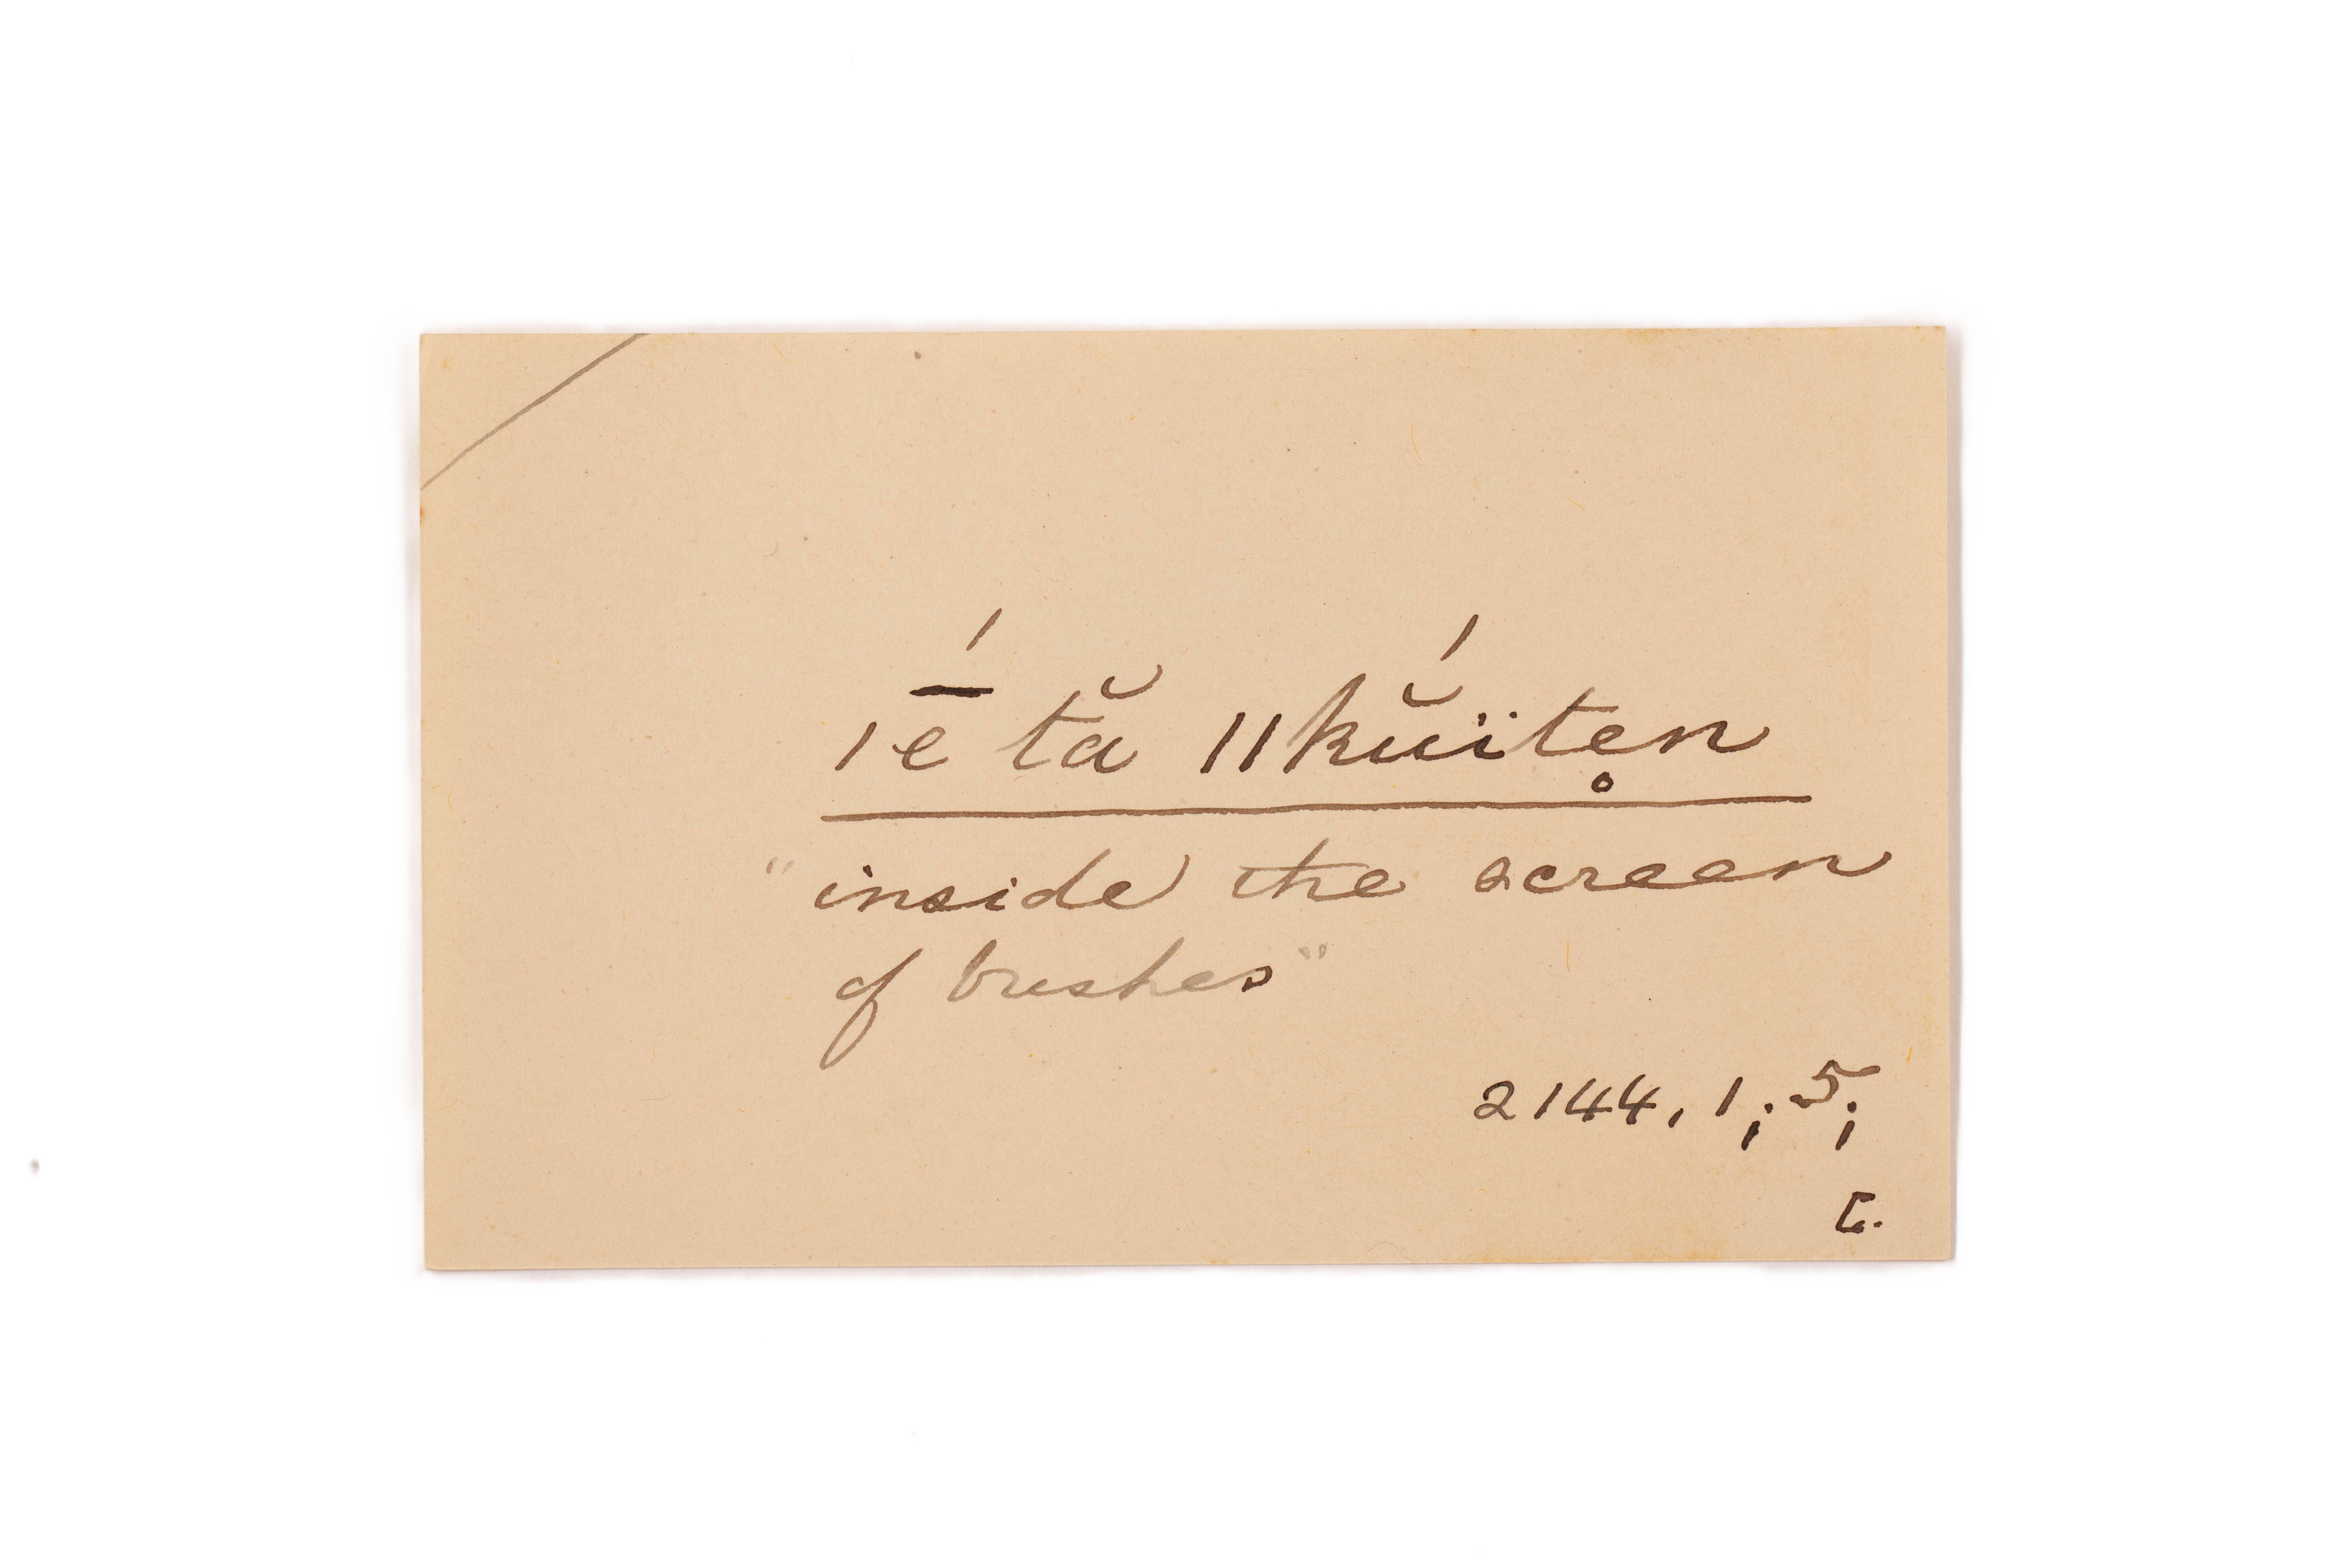 ǀḗ tă ǁkŭ́ïten̥
"inside the screen
of bushes"
2144, 1; 5;
C.